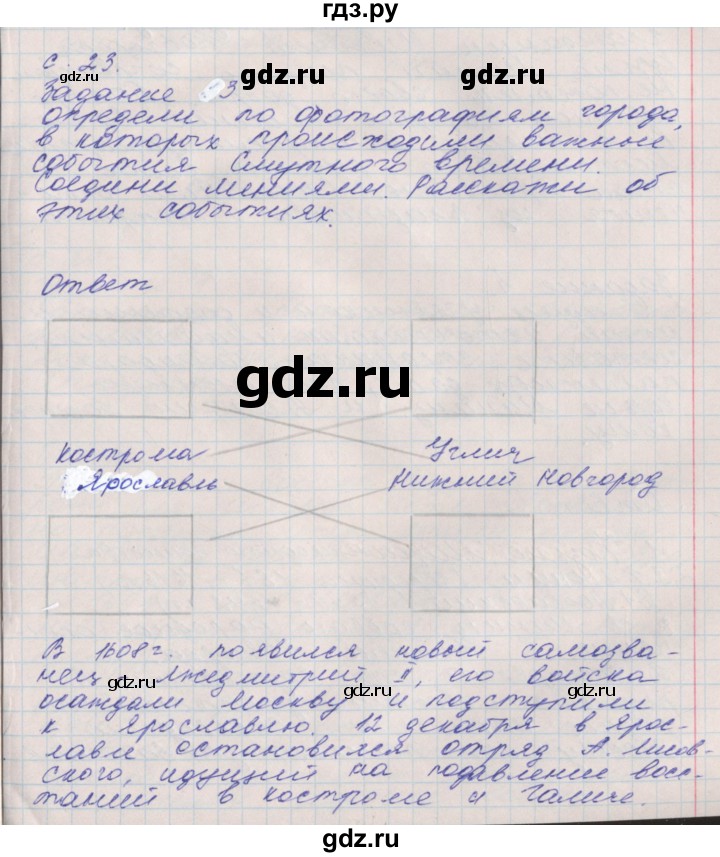 гдз.ру
с. 23.
gdz.ru
gdz.ru
Задание 3
определи по фотографиям города,
в которых происходили важные
события Смутного времени.
Соедини линиями. Расскажи об
этих событиях.
gdz.ru
gdz.ru
Ответ
gdz.ru
Кострома
Углич
Ярославль
Нижний Новгород
gdz.ru
gdz.ru
В 1608 г. появился новый самозва-
нец Лжедмитрий II, его войска
осаждали Москву и подступили
к Ярославлю. 12 декабря в Ярос-
лавле остановился отряд А. Лисов-
ского, идущий на подавление восс-
таний в Костроме и Галиче.
gdz.ru
gdz.ru
гдз.ру